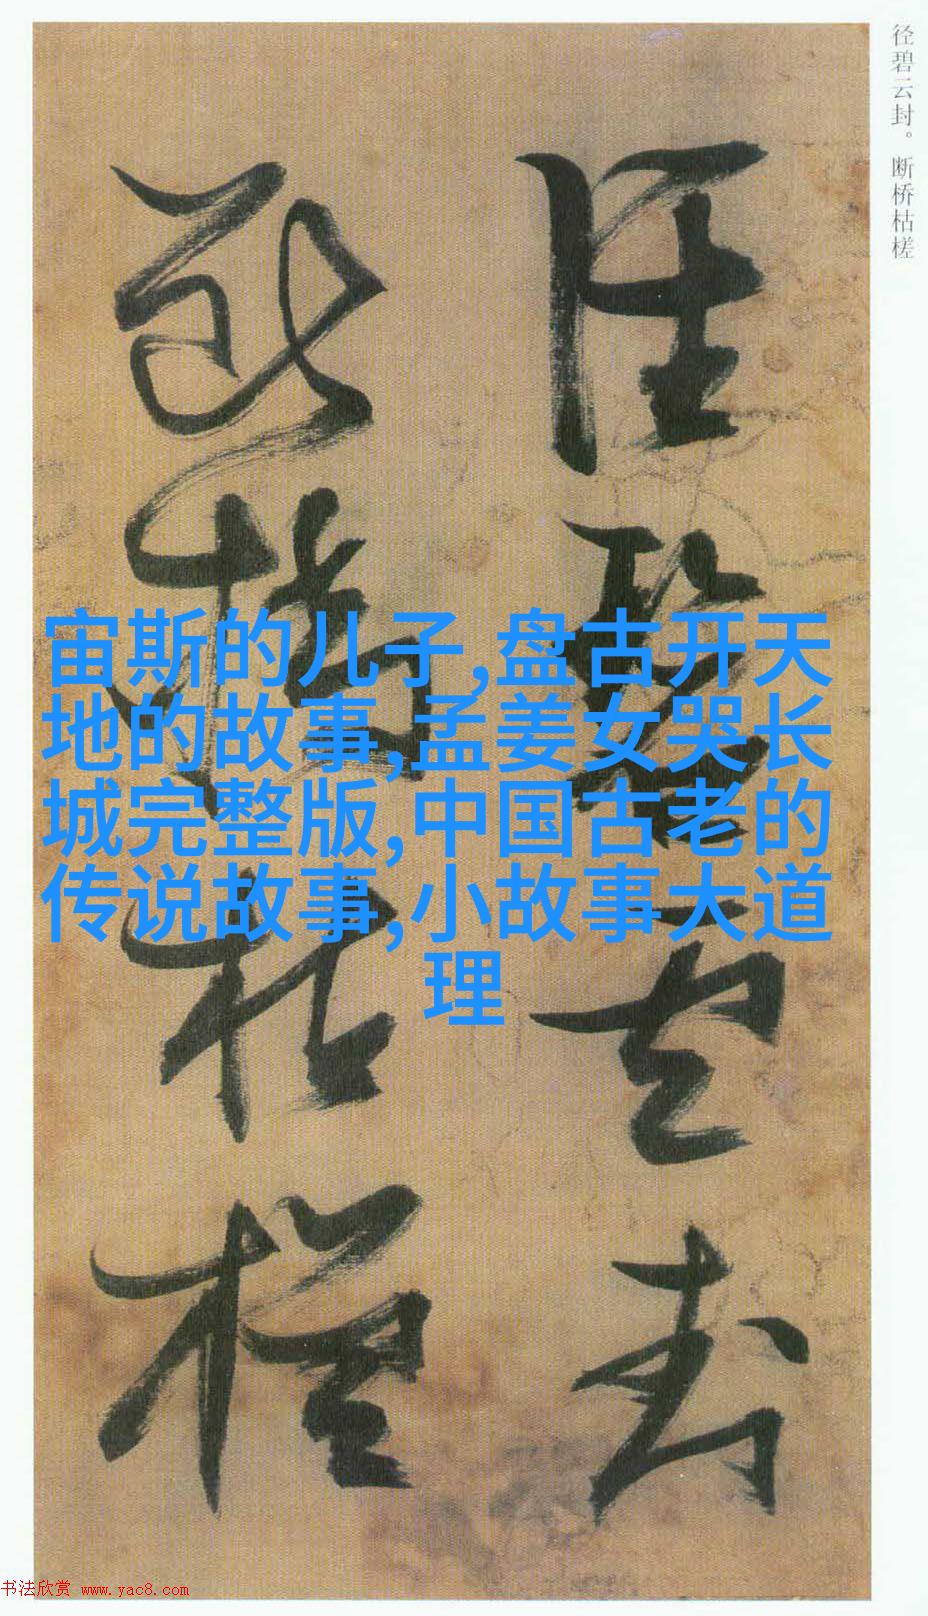 径碧云封。断桥枯槎
径碧云封
断桥枯槎
宙斯的儿子,盘古开天
地的故事,孟姜女哭长
城完整版,中国古老的
传说故事,小故事大道
理
书法欣赏 www.yac8.com